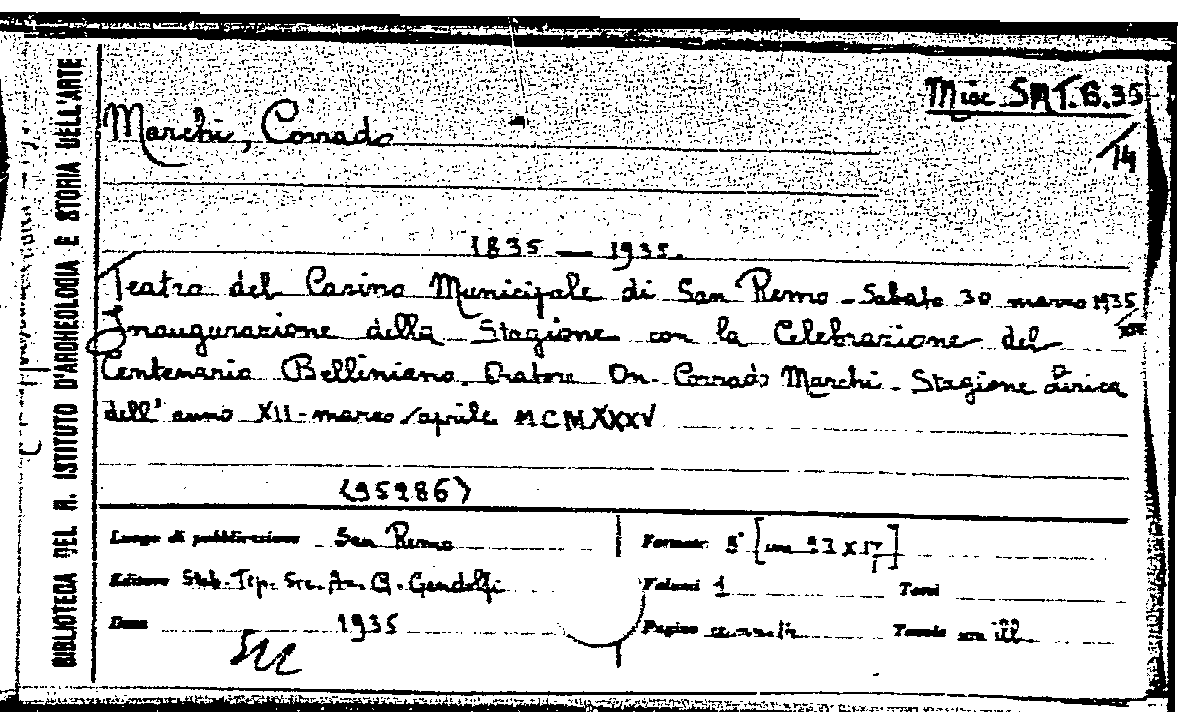 BIBLIOTECA DEL R. ISTITUTO D'ARCHEOLOGIA E STORIA DELL'ARTE
Misc. SAT. B. 35
/14
Marchi, Corrado
1835 — 1935.
Teatro del Casino Municipale di San Remo - Sabato 30 marzo 1935
XIII
Inaugurazione della Stagione con la Celebrazione del
Centenario Belliniano. Oratore On. Corrado Marchi - Stagione Lirica
dell' anno XII - marzo / aprile MCMXXXV
(95986)
Luogo di pubblicazione San Remo
Formato 8° [cm 23 X 17]
Editore Stab. Tip. Soc. An. G. Gandolfi
Volumi 1 Tomi
Data 1935
Pagine Tavole ill.